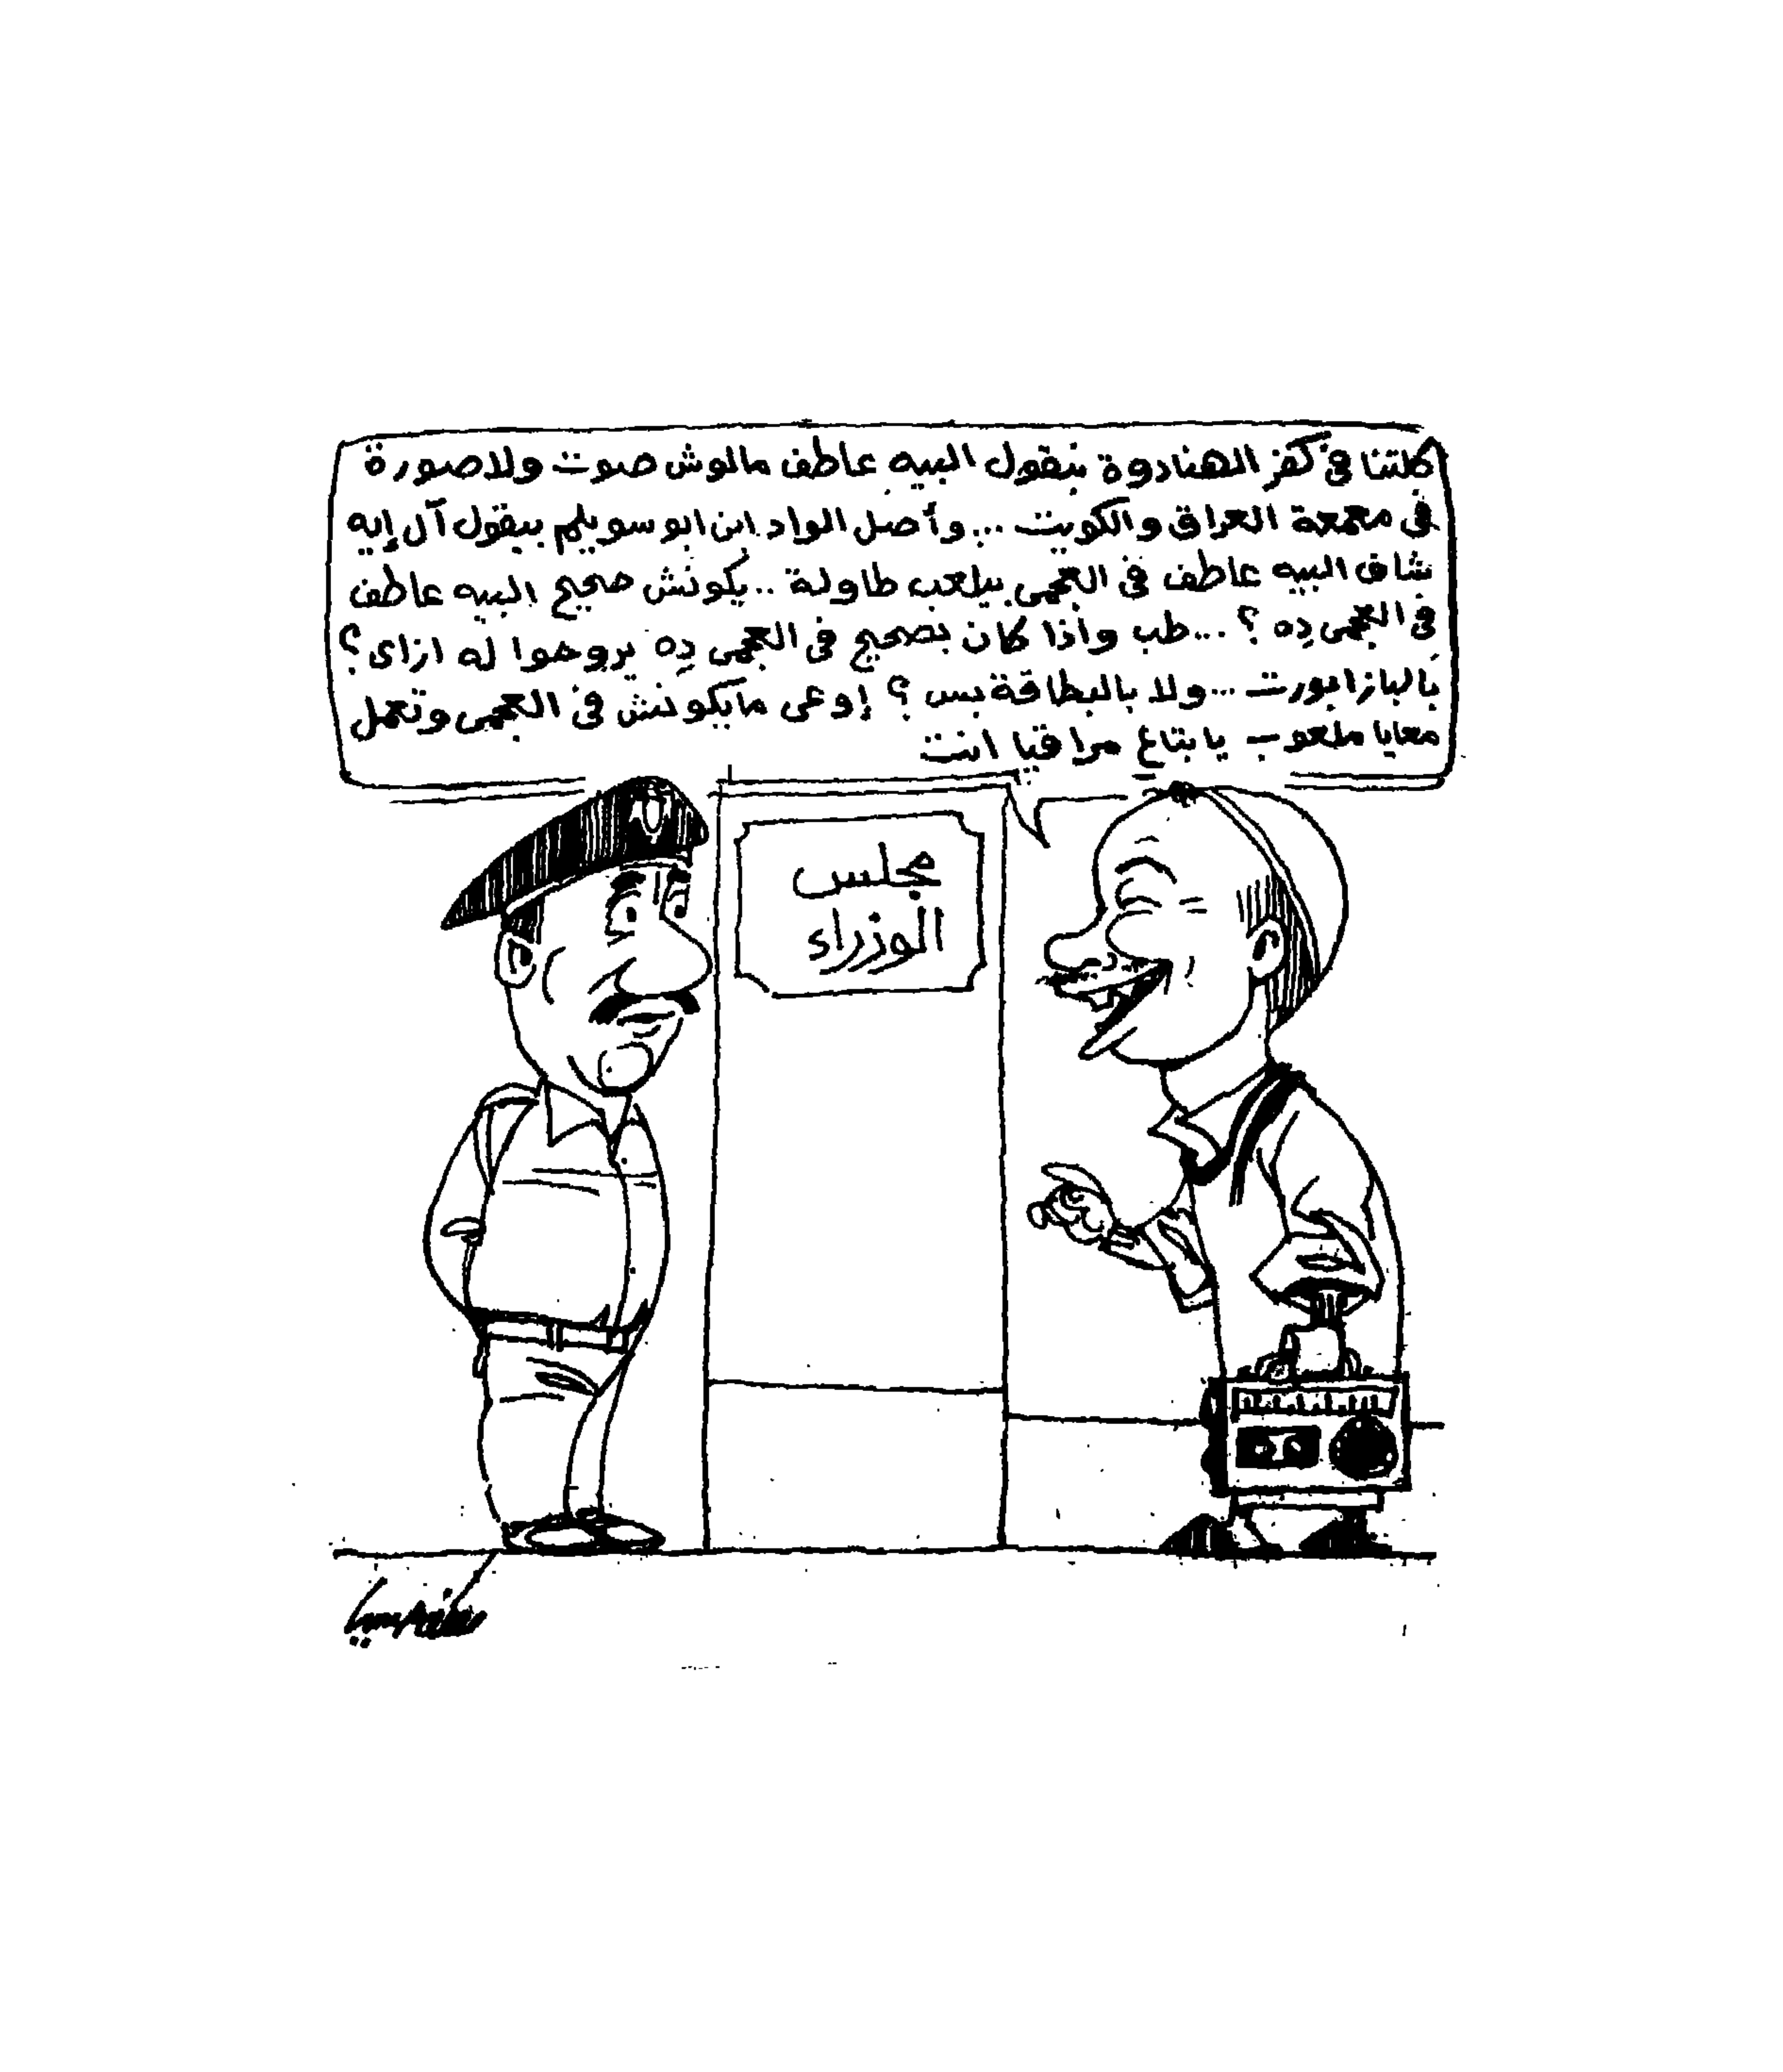 كلتنا فى كفر الهنادوة بنقول البيه عاطف مالوش صوت ولا صورة
فى معمعة العراق والكويت ... وأصل الواد ابن ابو سويلم بيقول آل إيه
شاف البيه عاطف فى العجمى بيلعب طاولة .. يكونش صحيح البيه عاطف
فى العجمى ده ؟ ... طب واذا كان بصحيح فى العجمى ده يروحوا له ازاى ؟
بالبازابورت ... ولا بالبطاقة بس ؟ إوعى مايكونش فى العجمى وتعمل
معايا ملعوب يا بتاع مراقيا انت
مجلس
الوزراء